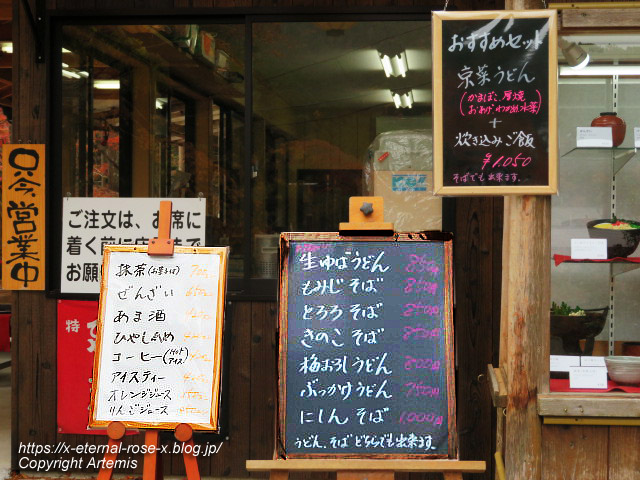 おすすめセット
京菜うどん
＋
炊き込みご飯
￥1,050
そばでも出来ます。
只今営業中
ご注文は、お席に
着く前に
お願
特
抹茶(お菓子付)
ぜんざい
あま酒
ひやしあめ
コーヒー(ホット アイス
アイスティー
オレンジジュース
りんごジュース
生ゆばうどん 850円
もみじそば 850円
とろろそば 850円
きのこそば 850円
梅おろしうどん 800円
ぶっかけうどん 750円
にしんそば 1,000円
うどん、そばどちらでも出来ます。
https://x-eternal-rose-x.blog.jp/
Copyright Artemis